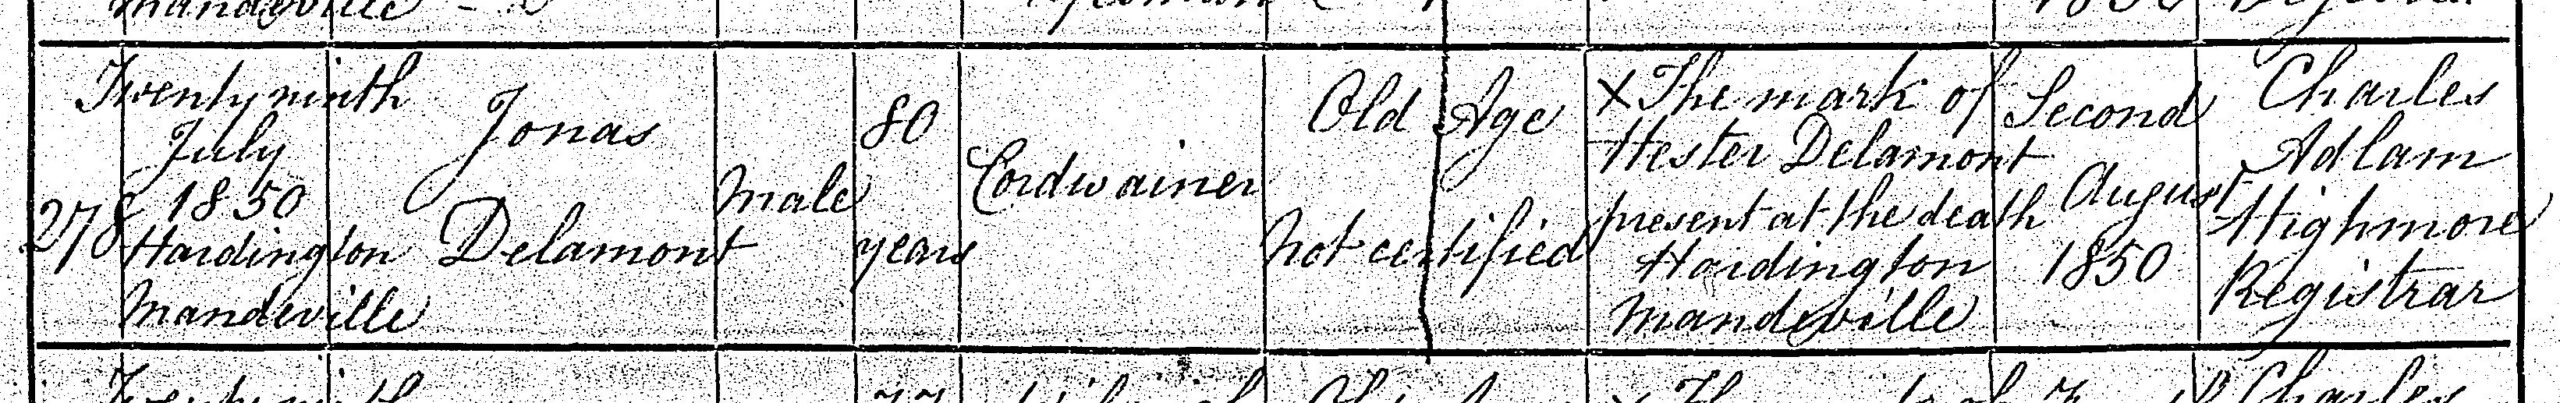 Mandeville
1850
278
Twenty ninth
July
1850
Hardington
Mandeville
Jonas
Delamont
Male
80
years
Cordwainer
Old Age
Not certified
X The mark of
Hester Delamont
present at the death
Hardington
Mandeville
Second
August
1850
Charles
Adlam
Highmore
Registrar
Twenty ninth
77
Charles